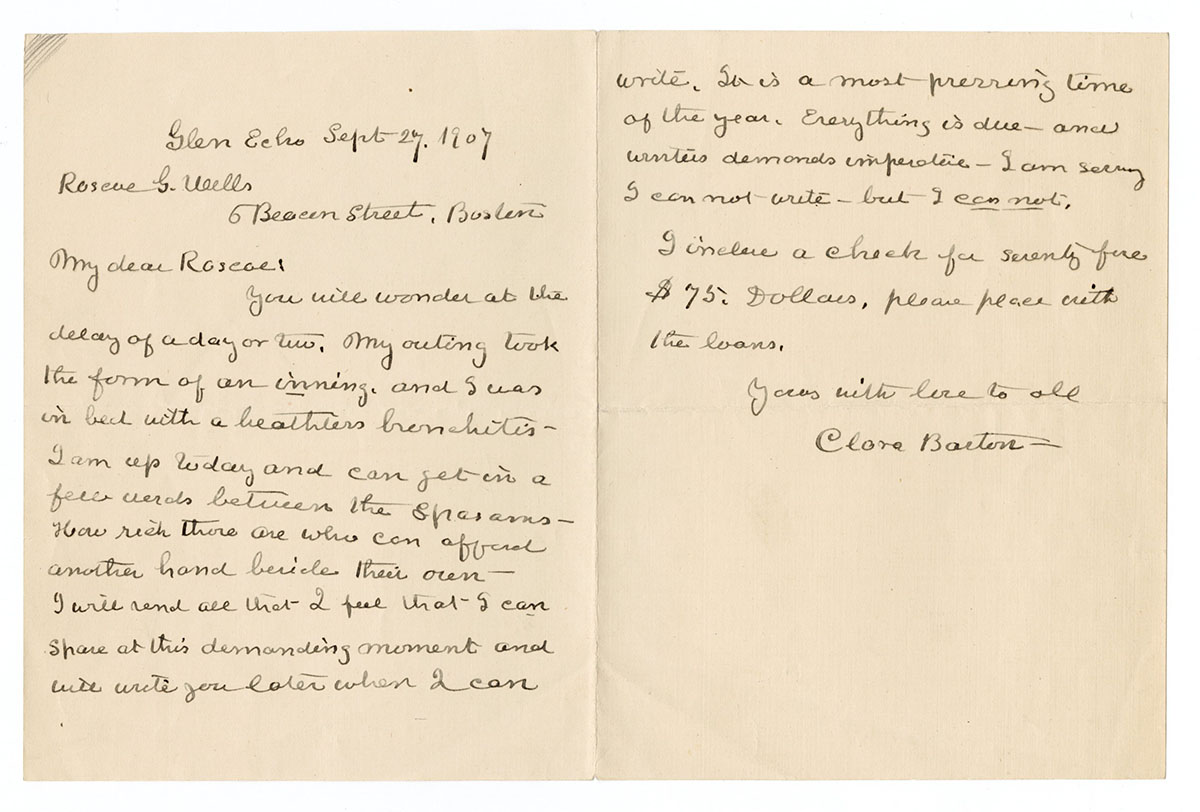 Glen Echo Sept 27. 1907
Roscoe G. Wells
6 Beacon Street, Boston
My dear Roscoe:
You will wonder at the
delay of a day or two. My outing took
the form of an inning. and I was
in bed with a heathless bronchitis -
I am up today and can get in a
few words between the spasams -
How rich those are who can afford
another hand beside their own -
I will send all that I feel that I can
spare at this demanding moment and
will write you later when I can
write. It is a most pressing time
of the year. Everything is due - and
winters demands imperative - I am sorry
I can not write - but I can not.
I inclose a check for seventy five
$75. Dollars, please place with
the loans.
Yours with love to all
Clara Barton -